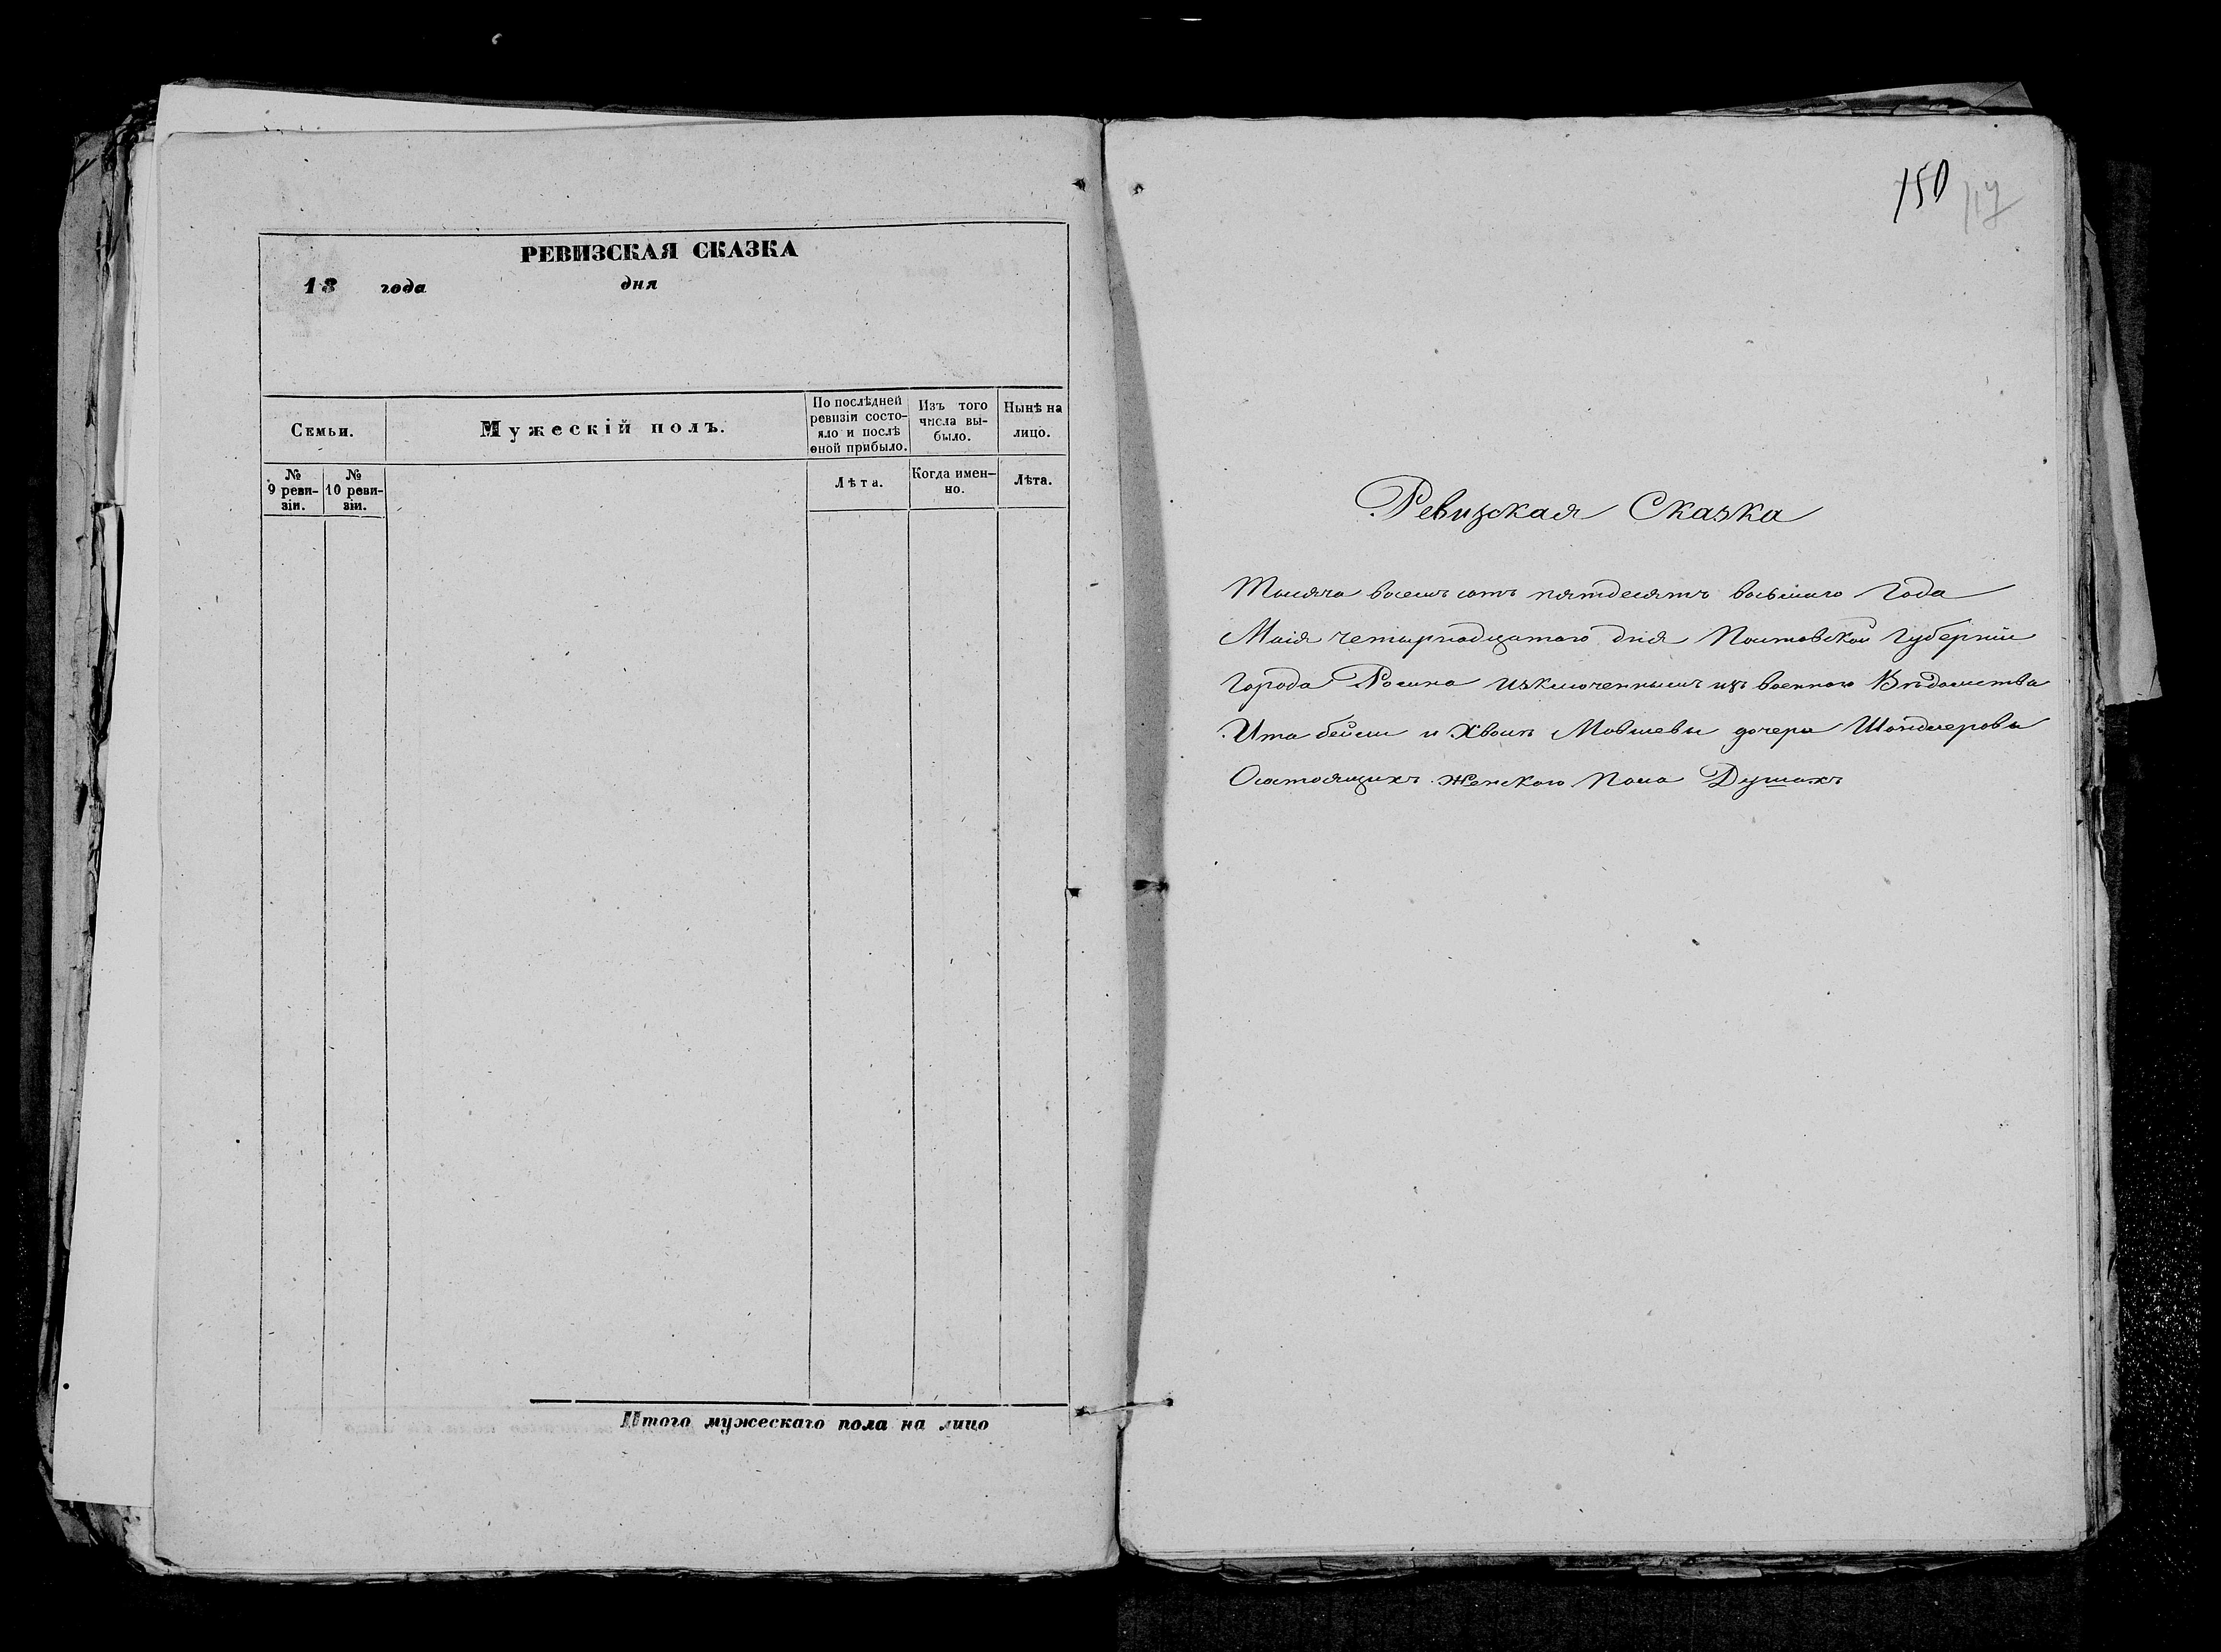 РЕВИЗСКАЯ СКАЗКА
18 года дня
Семьи.
Мужескій полъ.
По послѣдней ревизіи состо-
яло и послѣ оной прибыло.
Изъ того числа вы-
было.
Нынѣ на лицо.
№ 9 реви-
зіи.
№ 10 реви-
зіи.
Лѣта.
Когда имен-
но.
Лѣта.
Итого мужескаго пола на лицо
150 117
Ревизская Сказка
Тысяча восемьсотъ пятдесятъ восьмаго года
Маія четырнадцатаго дня Полтавской Губерніи
Города Ромна изключеннымъ изъ военнаго Вѣдомства
Ита бейли и Хвоин Мовшевы дочери
Осостоящихъ женскаго пола Душахъ